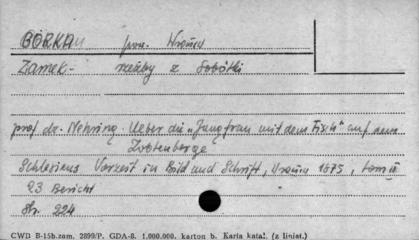 GÓRKAU pow. Wrocław
Zamek - rzeźby z Sobótki
prof dr. Nehring. Ueber die „Jungfrau mit dem Fisch" auf dem
Zobtenberge
Schlesiens Vorzeit in Bild und Schrift, 1875, tom II
23 Bericht
Str. 224
CWD B-15b.zam. 2899/P. GDA-8. 1.000.000. karton b. Karta katal. (z liniat.)